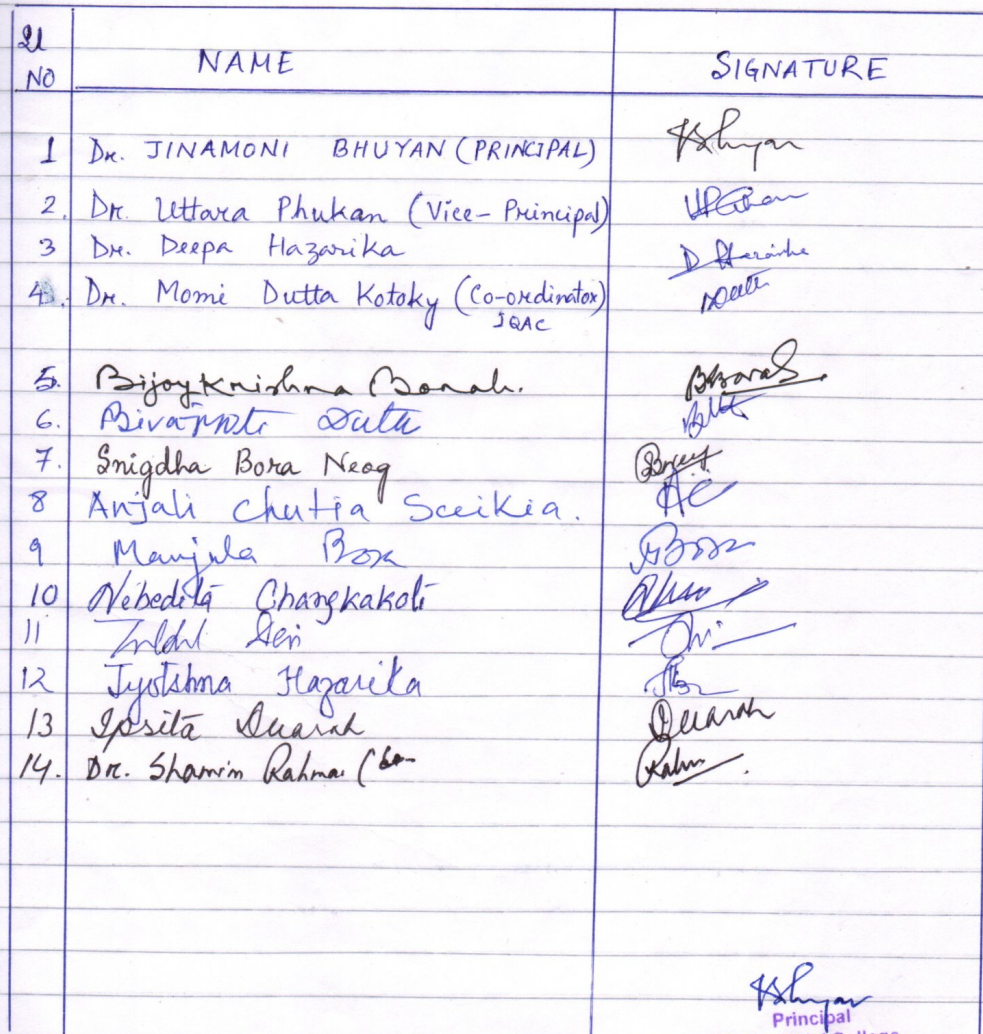 Sl NO NAME SIGNATURE
1 Dr. JINAMONI BHUYAN (PRINCIPAL) Bhuyan
2. Dr. Uttara Phukan (Vice-Principal)
3 Dr. Deepa Hazarika D Hazarika
4. Dr. Momi Dutta Kotoky (Co-ordinator) Dutta
IQAC
5. Bijoy Krishna Borah. BBorah
6. Dutta
7. Snigdha Bora Neog
8 Anjali Chutia Saikia. AC
9 Manjula Bora MBora
10 Nebedita Changkakoti
11
12 Jyotshna Hazarika
13 Ipsita Duarah Duarah
14. Dr. Shamim Rahman Rahm
Bhuyan
Principal